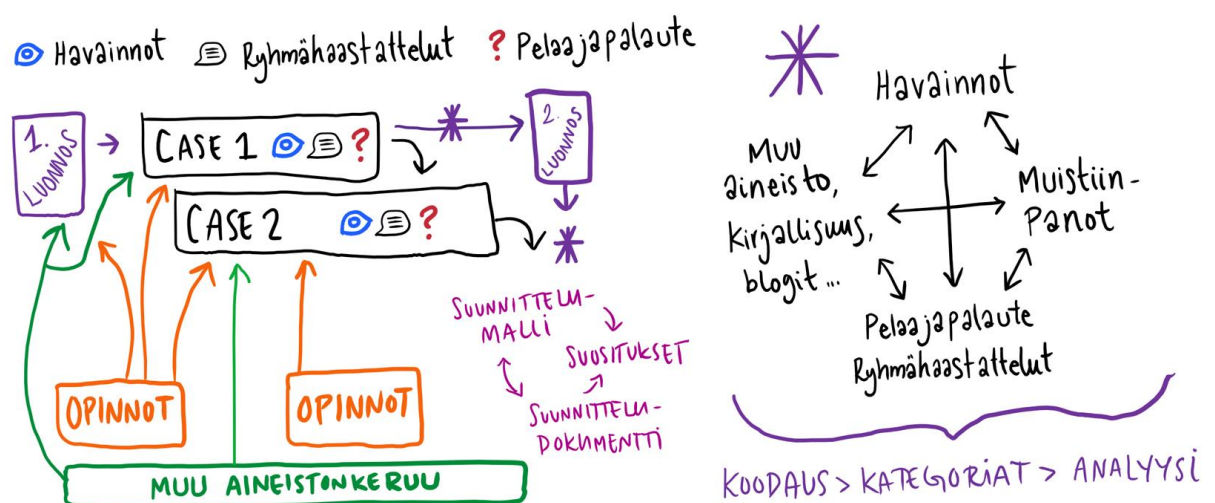 Havainnot
Ryhmähaastattelut
? Pelaajapalaute
1.
LUONNOS
CASE 1 ?
2.
LUONNOS
CASE 2 ?
SUUNNITTELU-
MALLI
SUOSITUKSET
SUUNNITTELU-
DOKUMENTTI
OPINNOT
OPINNOT
MUU AINEISTONKERUU
Havainnot
Muu
aineisto,
kirjallisuus,
blogit...
Muistiin-
panot
Pelaajapalaute
Ryhmähaastattelut
KOODAUS > KATEGORIAT > ANALYYSI